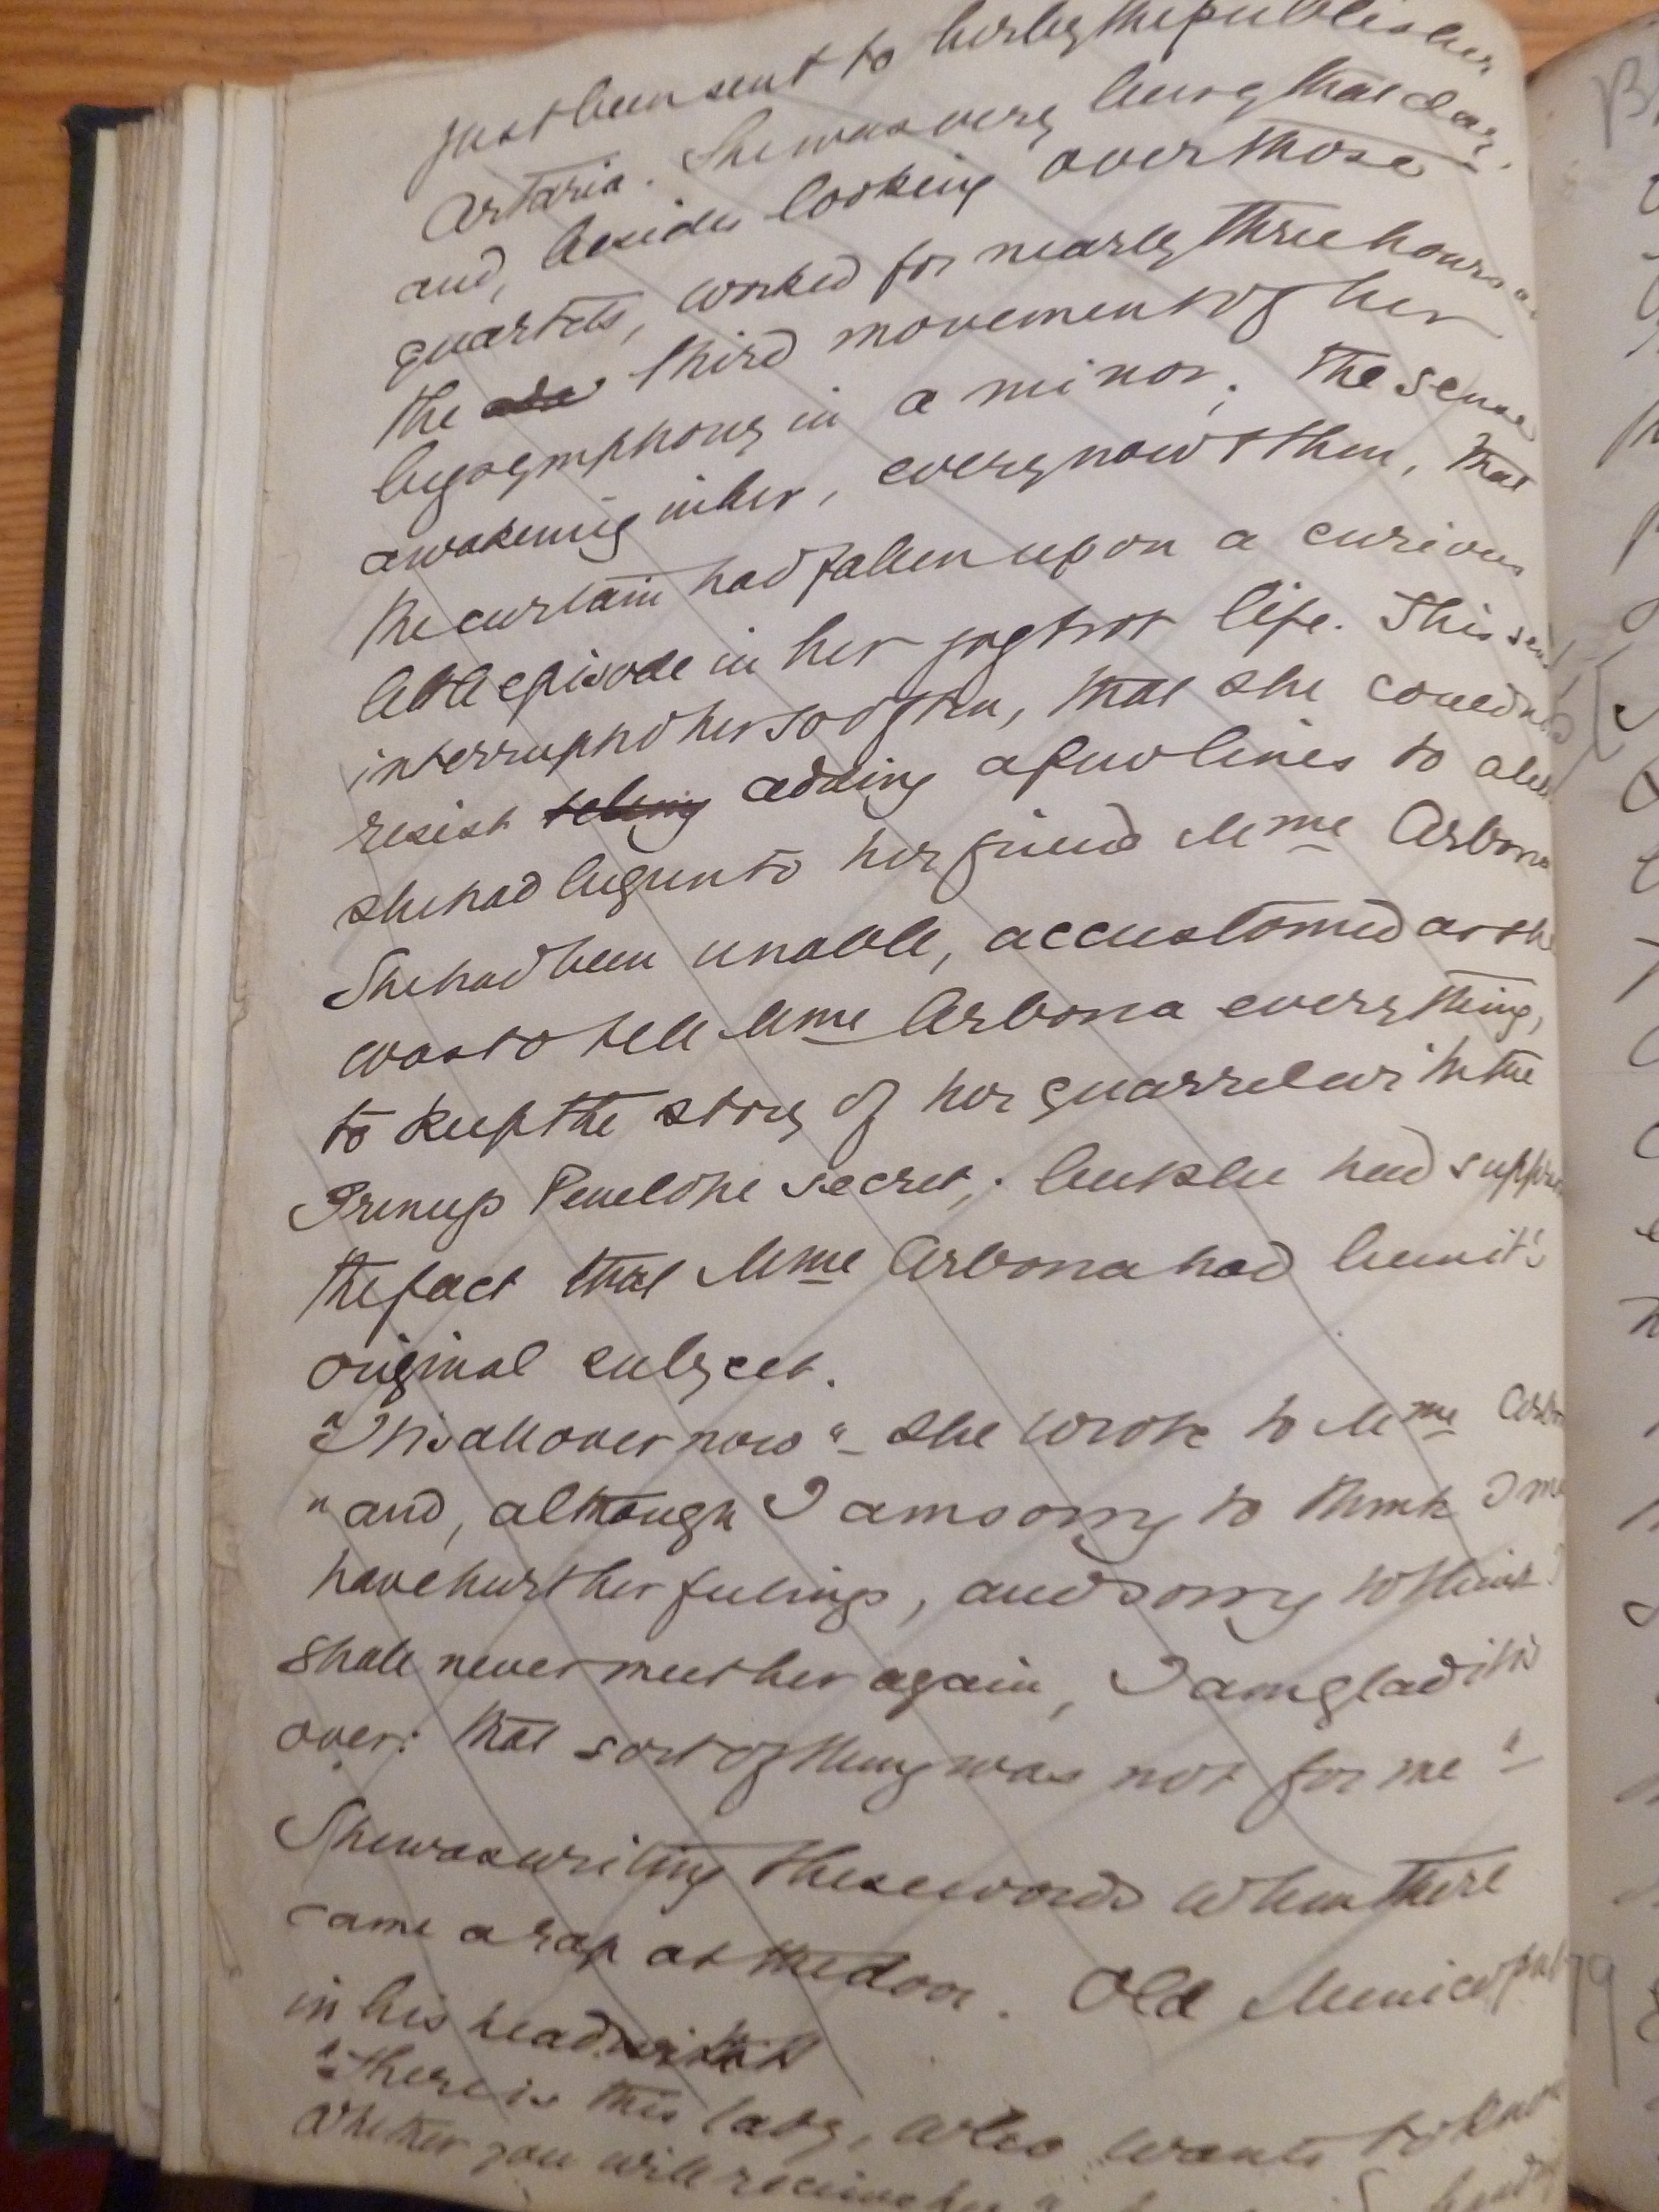 just been sent to her by the publisher
Artaria. She was very busy that day,
and, besides looking over those
quartets, worked for nearly three hours
the third movement of her
big symphony in a minor. The sense
awakening in her, every now & then, that
the curtain had fallen upon a curious
little episode in her jogtrot life. This
interrupted her so often, that she could
resist telling adding a few lines to
she had begun to her friend Mme Arbona
She had been unable, accustomed as she
was to tell Mme Arbona everything,
to keep the story of her quarrel with the
Princess Penelope secret; but she had
the fact that Mme Arbona had been it's
original subject.
"It is all over now"- she wrote to Mme
"and, although I am sorry to think I
have hurt her feelings, and sorry to think I
shall never meet her again, I am glad it is
over: that sort of thing was not for me"-
She was writing these words when there
came a rap at the door. Old
in his head
"There is this lady, who wants to know
whether you will receive her"